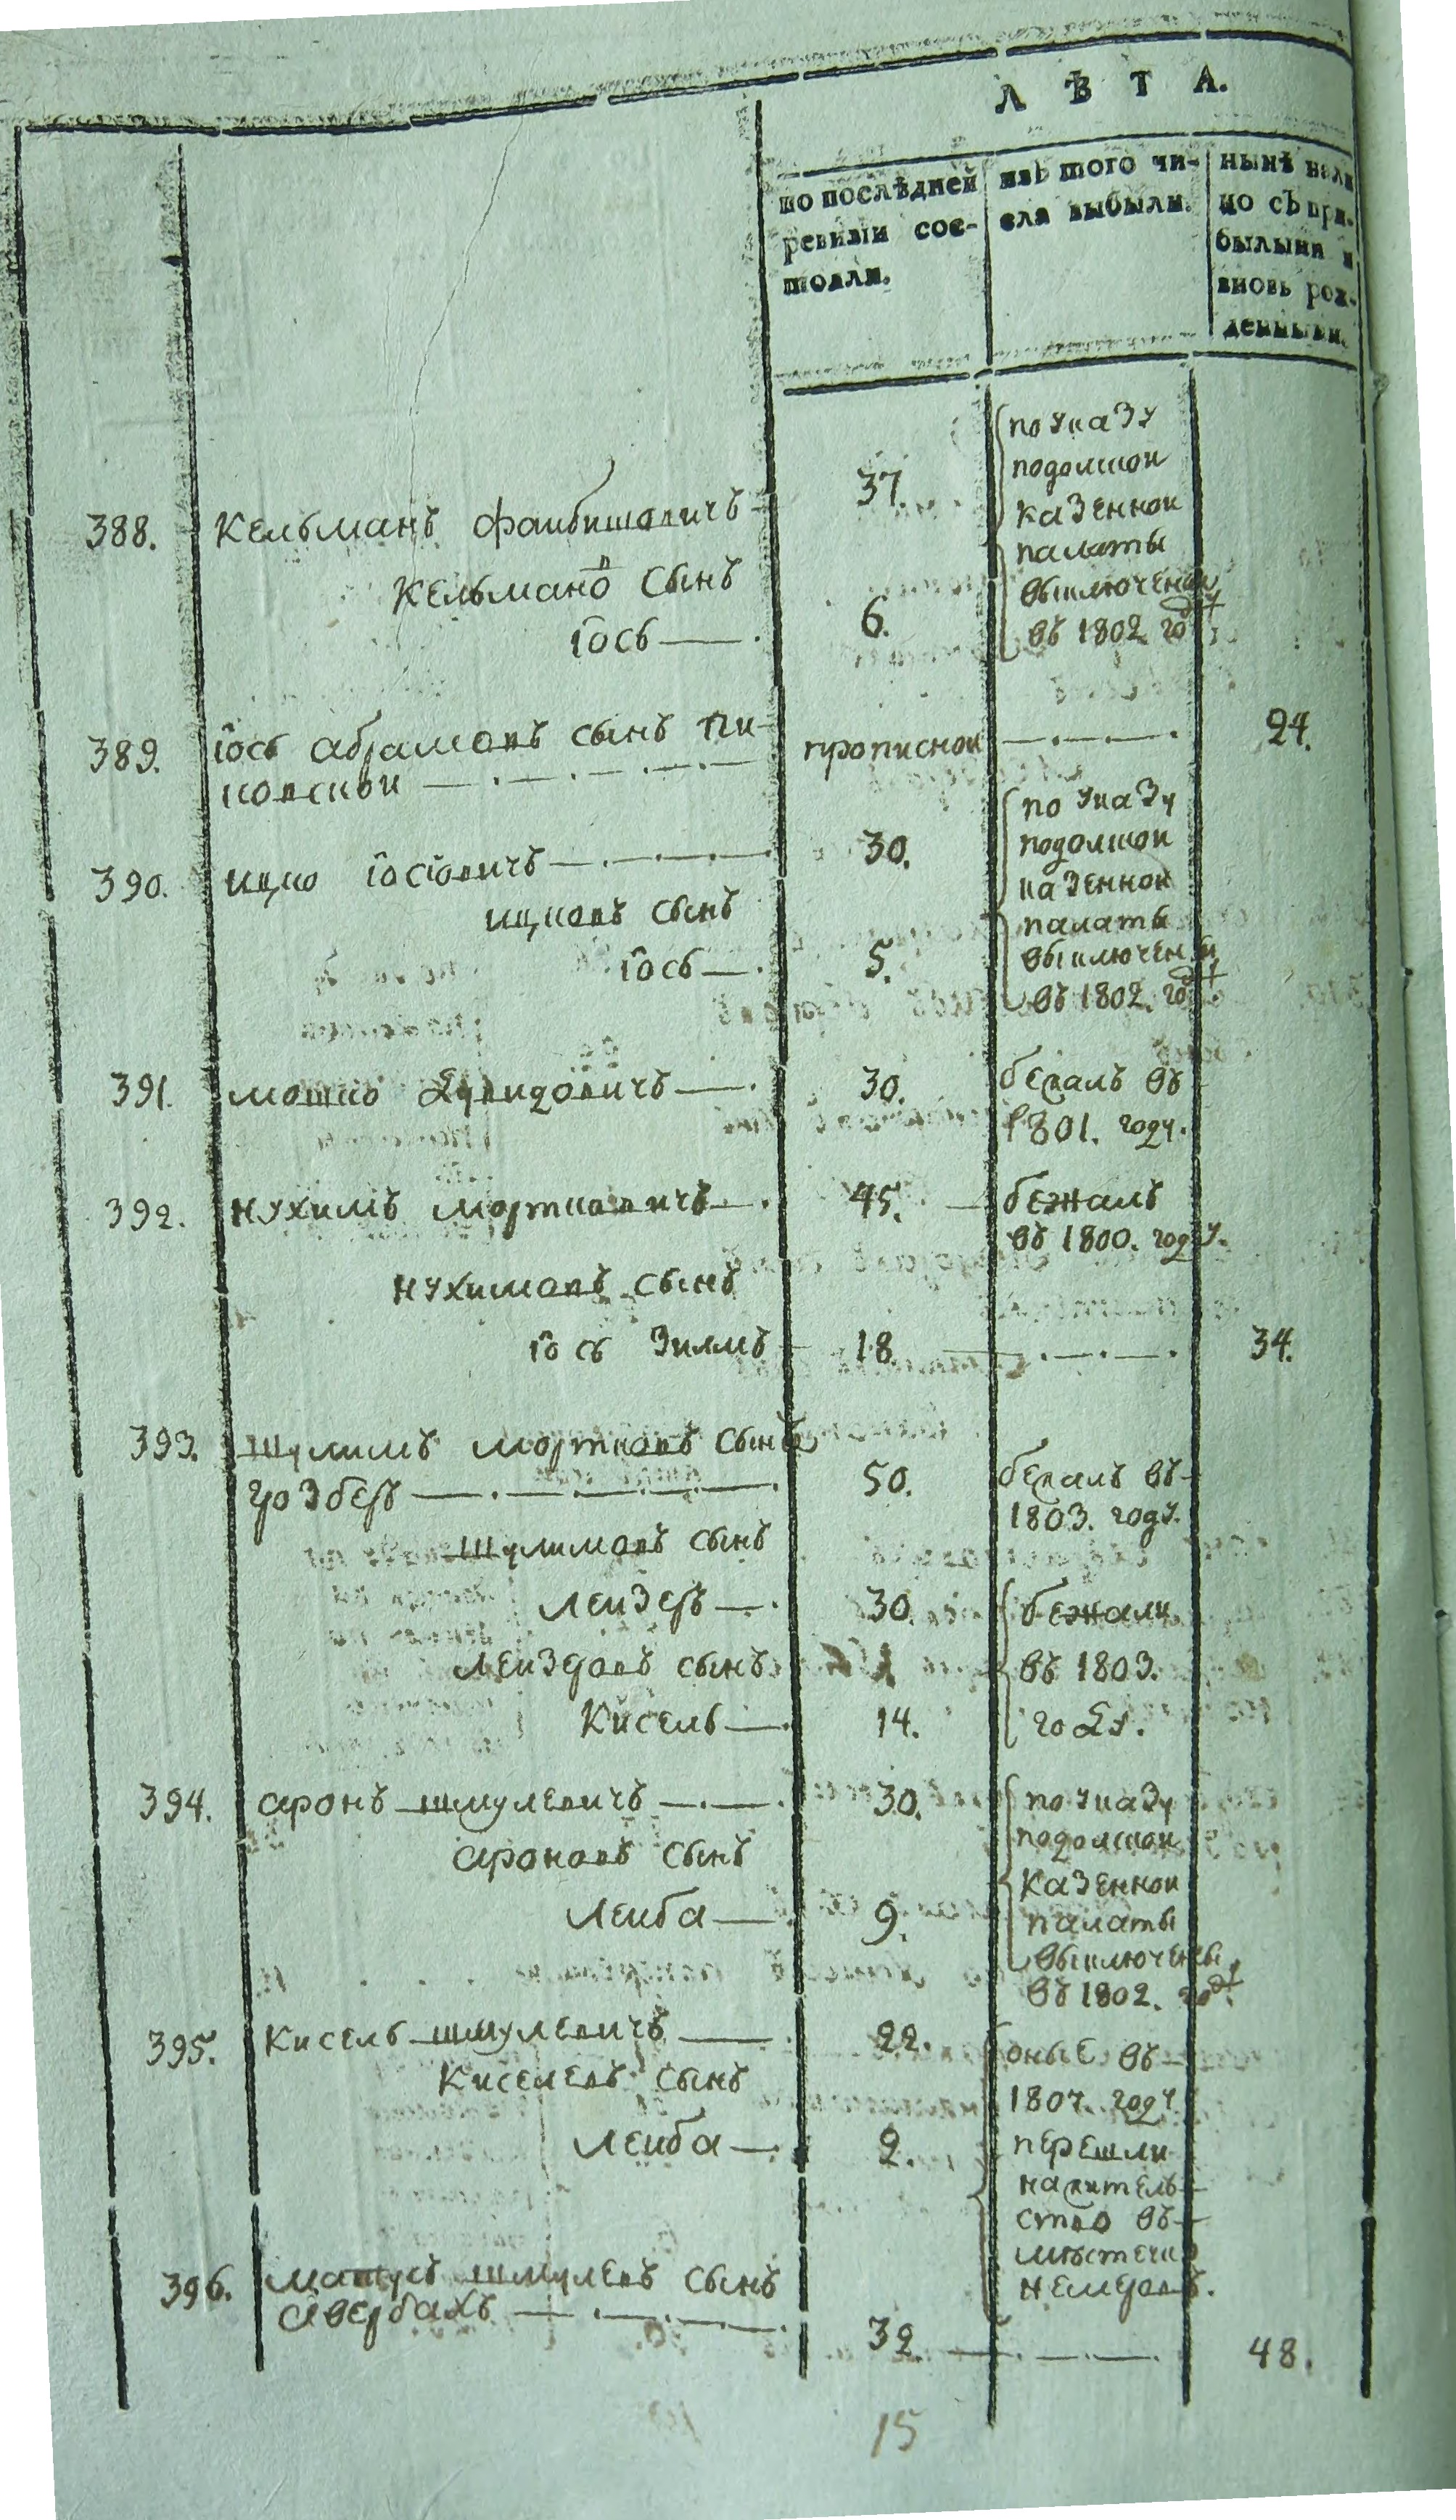 ЛѢТА.
по послѣдней
ревизіи сос-
тояли.
изъ того чи-
сла выбыли.
нынѣ нали
цо съ при-
былыми и
вновь рож-
денными.
388. Кельманъ фаибишовичъ 37.
по указу
подолскои
казеннои
палаты
выключены
въ 1802 году
Кельмановъ сынъ
іось 6.
389. іось абрамовъ сынъ пи-
ковскои прописнои 24.
390. ицко іосіовичъ 30.
по указу
подолскои
казеннои
палаты
выключены
въ 1802. году
ицковъ сынъ
іось 5.
391. мошко Давидовичъ 30. бежалъ въ
1801. году.
392. нухимъ мортковичъ 45. бежалъ
въ 1800. году.
нухимовъ сынъ
іось Зилмъ 18 34.
393. шулимъ мортковъ сынъ
50. бежалъ въ
1803. году.
шулимовъ сынъ
леизеръ 30. бежали
леизеровъ сынъ въ 1803.
Кисель 14. году.
394. аронъ шмулевичъ 30. по указу
ароновъ сынъ подолскои
казеннои
леиба 9. палаты
выключены
въ 1802. году.
395. Кисель шмулевичъ 22. оные въ
Киселевъ сынъ 1807. году
леиба 2. перешли
на житель
ство въ
местечко
немеровъ.
396. матусъ шмулевъ сынъ
авербахъ 32 48.
15